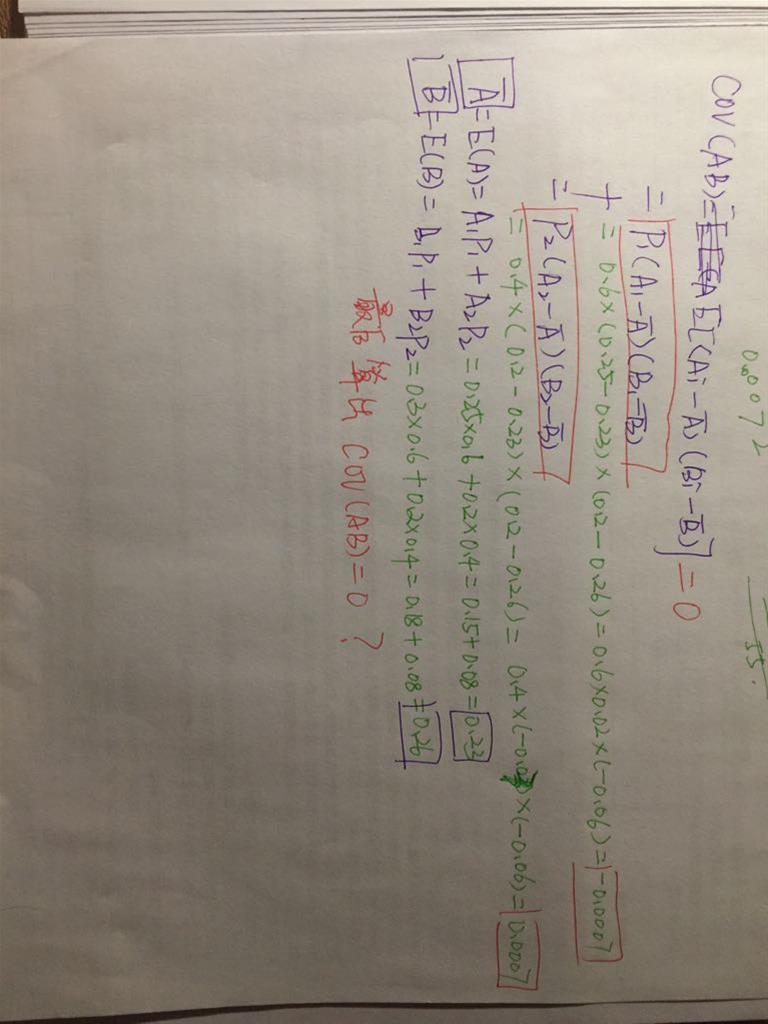 0.0072
55.
COV(AB)=E[(Ai-A̅)(Bi-B̅)]=0
= P₁(A₁-A̅)(B₁-B̅)
= 0.6×(0.25-0.23)×(0.2-0.26)=0.6×0.02×(-0.06)=-0.0007
+
= P₂(A₂-A̅)(B₂-B̅)
= 0.4×(0.2-0.23)×(0.2-0.26)=0.4×(-0.03)×(-0.06)=0.0007
A̅=E(A)=A₁P₁+A₂P₂=0.25×0.6+0.2×0.4=0.15+0.08=0.23
B̅=E(B)=B₁P₁+B₂P₂=0.3×0.6+0.2×0.4=0.18+0.08=0.26
最后算出 COV(AB)=0?